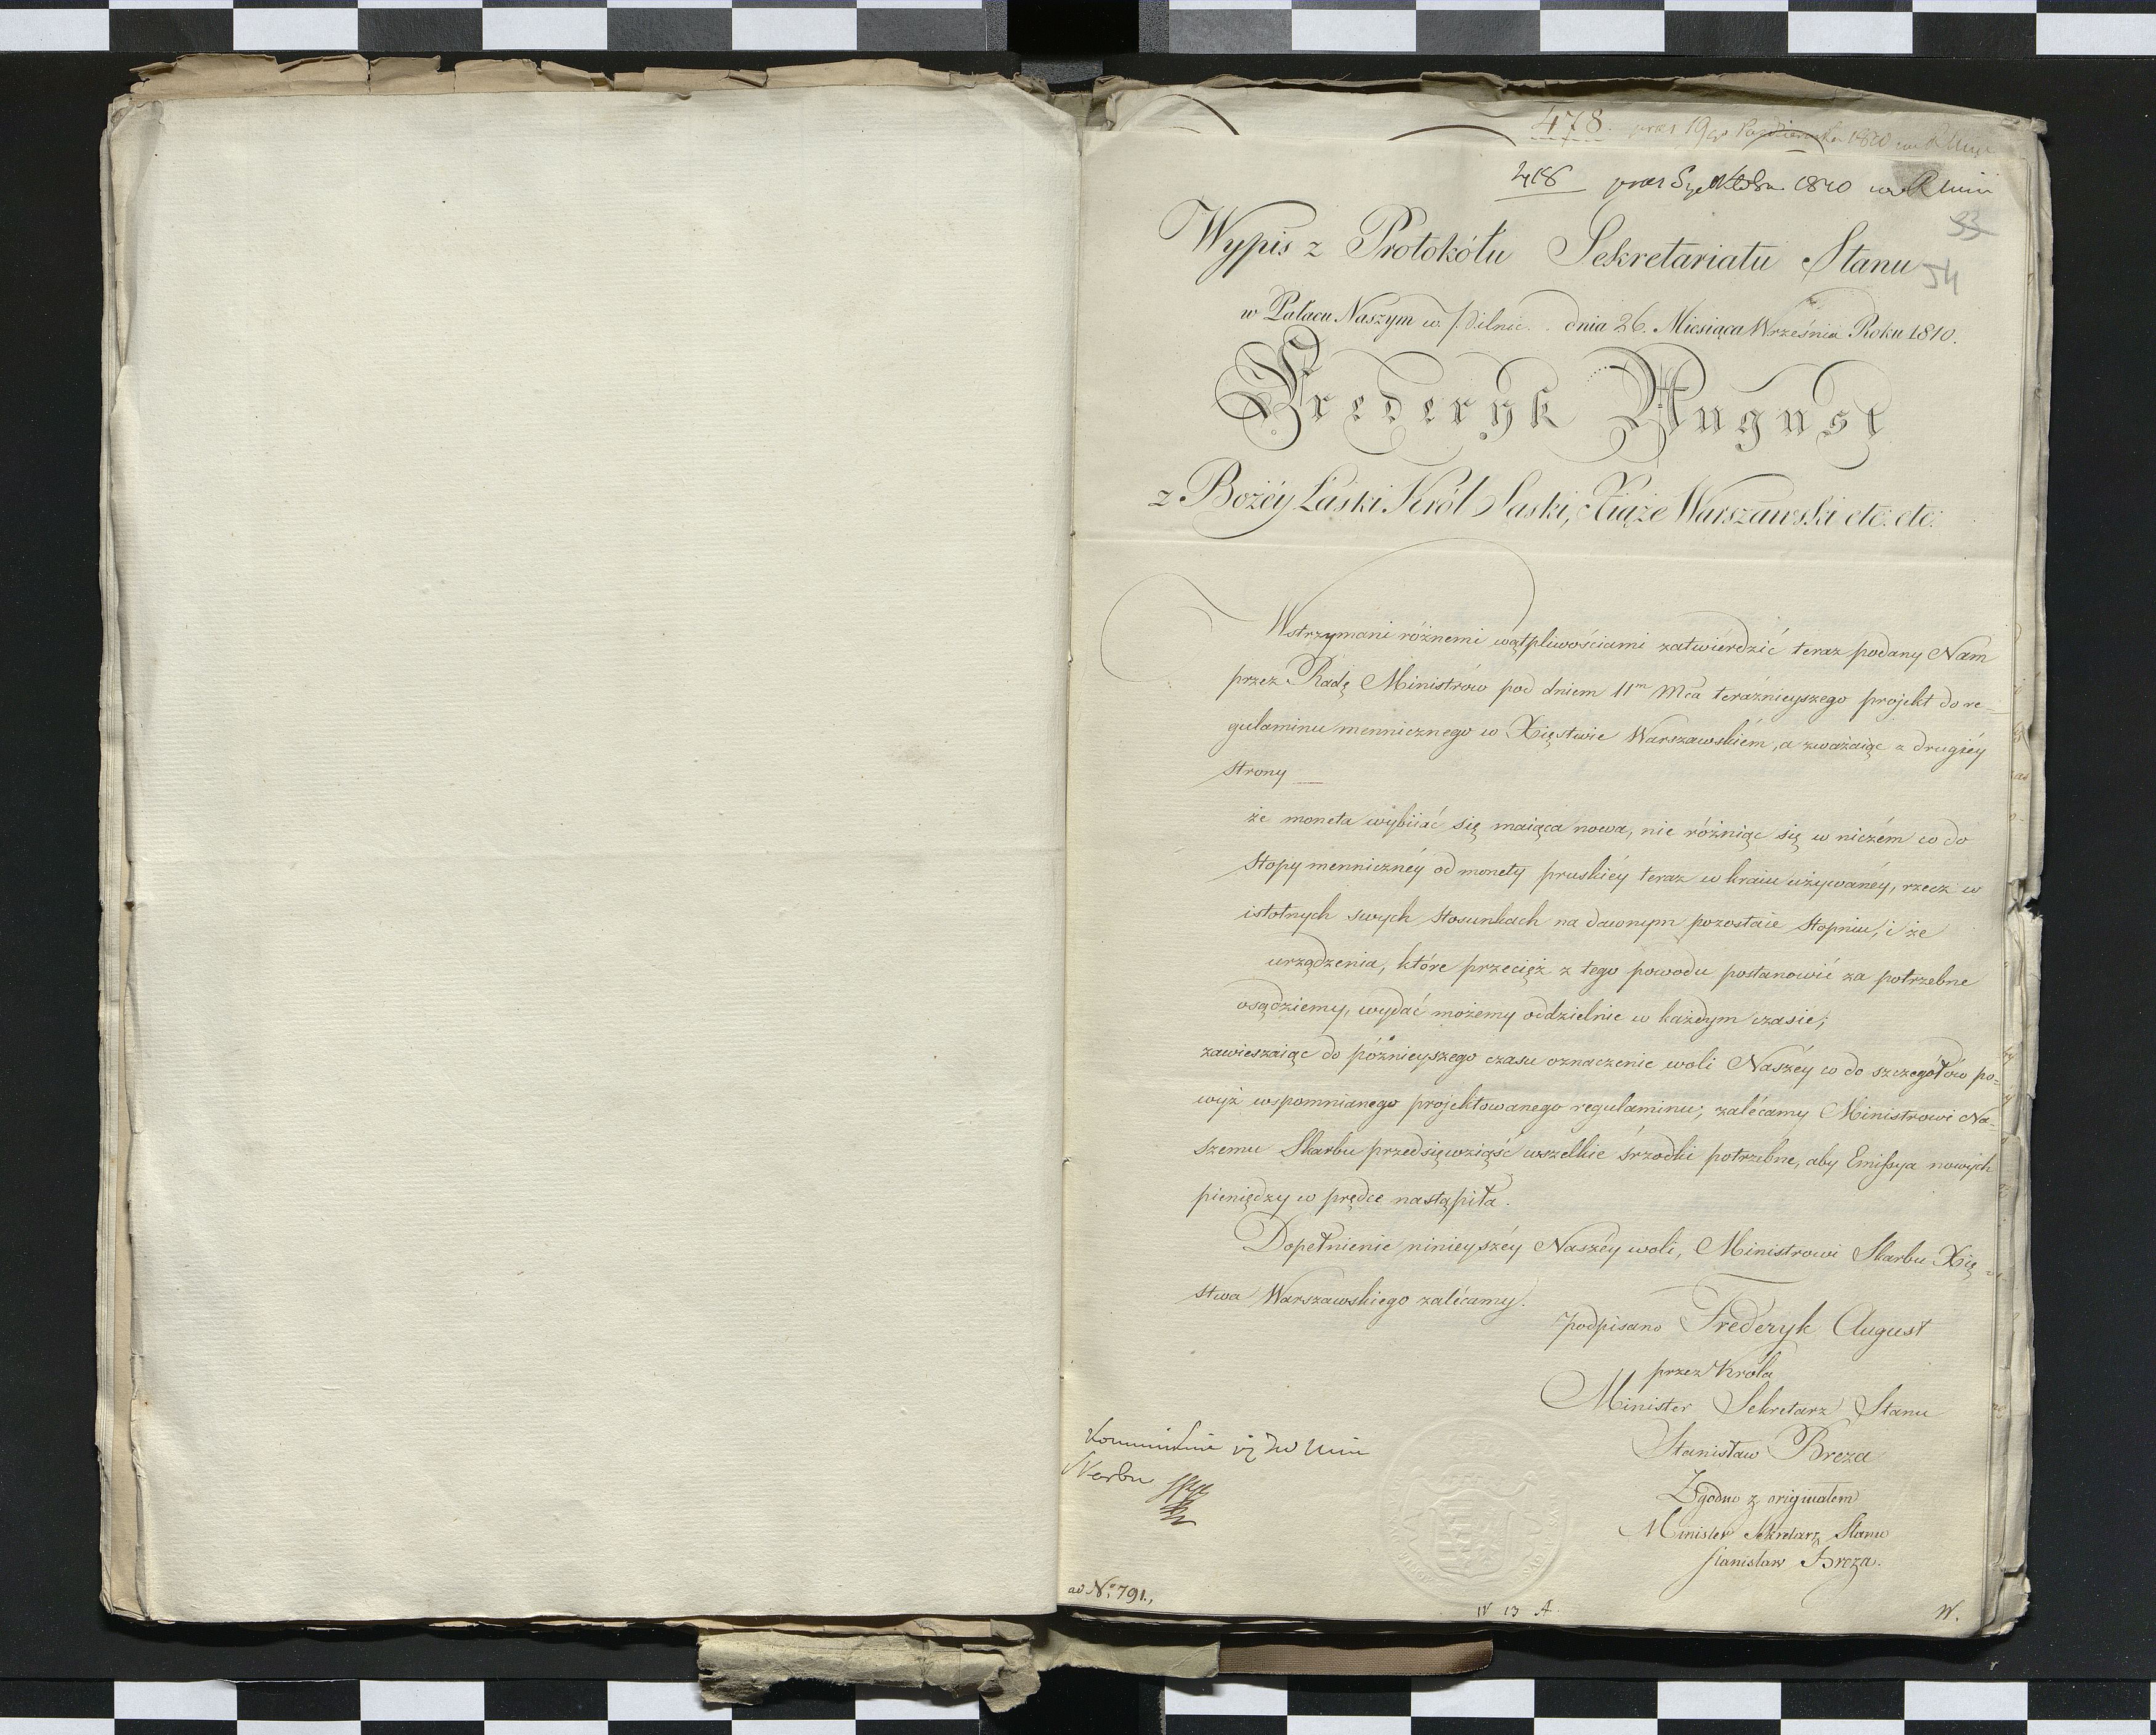 478. praes 19 go Października 1810 w R Min
418 praes 5 go Októbra 1810 w R Min
53
54
Wypis z Protokółu Sekretariatu Stanu
w Pałacu Naszym w Pilnic. dnia 26. Miesiąca Września Roku 1810.
Frederyk August
z Bożéy Łaski Król Saski, Xiąże Warszawski etc: etc:
Wstrzymani różnemi wątpliwościami zatwierdzić teraz podany Nam
przez Radę Ministrów pod dniem 11m Mca teraźnieyszego projekt do re-
gulaminu mennicznego w Xięstwie Warszawskiém, a zważaiąc z drugiéy
strony —
że moneta wybiiać się maiąca nowa, nie różniąc się w niczém co do
stopy mennicznéy od monety pruskiéy teraz w kraiu używanéy, rzecz w
istotnych swych stosunkach na dawnym pozostaie stopniu, i że
urządzenia, które przecięż z tego powodu postanowić za potrzebne
osądziemy, wydać możemy oddzielnie w każdym czasie;
zawieszaiąc do późnieyszego czasu oznaczenie woli Naszéy co do szczegółów po-
wyż wspomnianego projektowanego regulaminu; zalécamy Ministrowi Na-
szemu Skarbu przedsięwziąść wszelkie śrzodki potrzebne, aby Emissya nowych
pieniędzy w prędce nastąpiła.
Dopełnienie ninieyszéy Naszéy woli, Ministrowi Skarbu Xię-
stwa Warszawskiego zalécamy.
podpisano Frederyk August
przez Króla
Minister Sekretarz Stanu
Stanisław Breza
Zgodno z originałem
Minister Sekretarz Stanu
Stanisław Breza.
Skarbu
ad No. 791.,
IV 13 A
W.